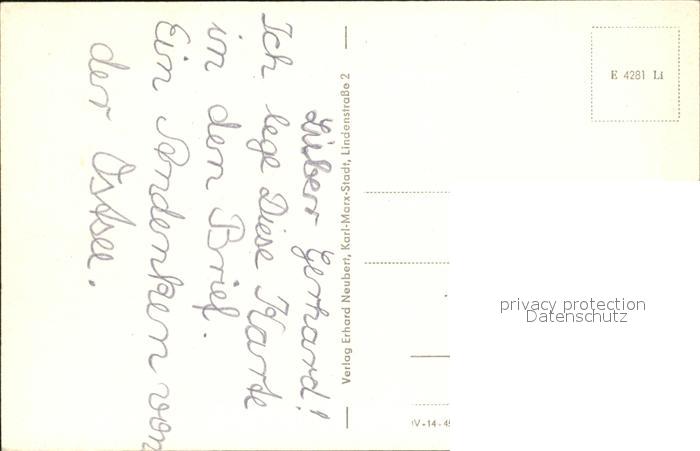 Lieber Gerhard!
Ich lege Diese Karte
in den Brief.
Ein Andenken von
der Ostsee.
Verlag Erhard Neubert, Karl-Marx-Stadt, Lindenstraße 2
E 4281 Li
privacy protection
Datenschutz